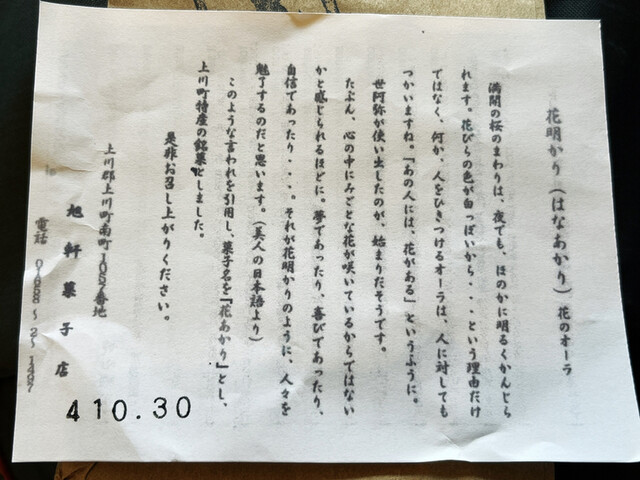 花明かり（はなあかり）花のオーラ
満開の桜のまわりは、夜でも、ほのかに明るくかんじら
れます。花びらの色が白っぽいから・・・という理由だけ
ではなく、何か、人をひきつけるオーラは、人に対しても
つかいますね。「あの人には、花がある」というふうに。
世阿弥が使い出したのが、始まりだそうです。
たぶん、心の中にみごとな花が咲いているからではない
かと感じられるほどに。夢であったり、喜びであったり、
自信であったり・・・。それが花明かりのように、人々を
魅了するのだと思います。（美人の日本語より）
このような言われを引用し、菓子名を『花あかり』とし、
上川町特産の銘菓としました。
是非お召し上がりください。
上川郡上川町南町1057番地
旭軒菓子店
電話 01658〜2〜1497
410.30